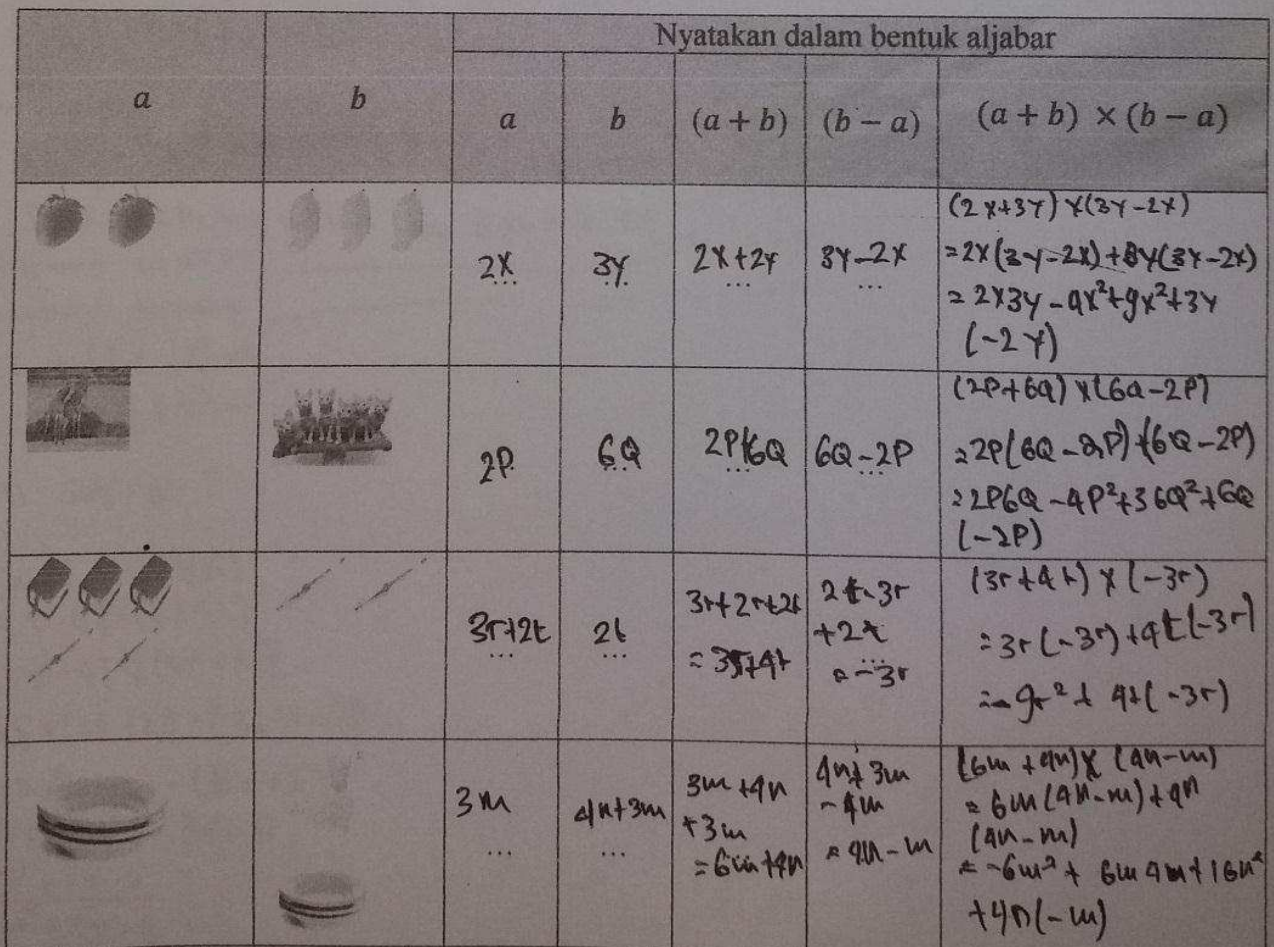 Nyatakan dalam bentuk aljabar
a b a b (a + b) (b − a) (a + b) × (b − a)
2x
...
3y
...
2x+2y
...
3y-2x
...
(2x+3y)x(3y-2x)
=2x(3y-2x)+3y(3y-2x)
=2x3y-4x²+9x²+3y
(-2y)
2P
6Q
...
2P+6Q
...
6Q-2P
...
(2P+6Q)x(6Q-2P)
=2P(6Q-2P)+(6Q-2P)
=2P6Q-4P²+36Q²+6Q
(-2P)
3r+2t
...
2t
...
3r+2r+2t
=3r+4t
2t-3r
+2t
...
=-3r
(3r+4t)x(-3r)
=3r(-3r)+4t(-3r)
=-9r²+4t(-3r)
3m
...
4n+3m
...
3m+4n
+3m
=6m+4n
4n+3m
-4m
=4n-m
(6m+4n)x(4n-m)
=6m(4n-m)+4n
(4n-m)
=-6m²+6m4n+16n²
+4n(-m)